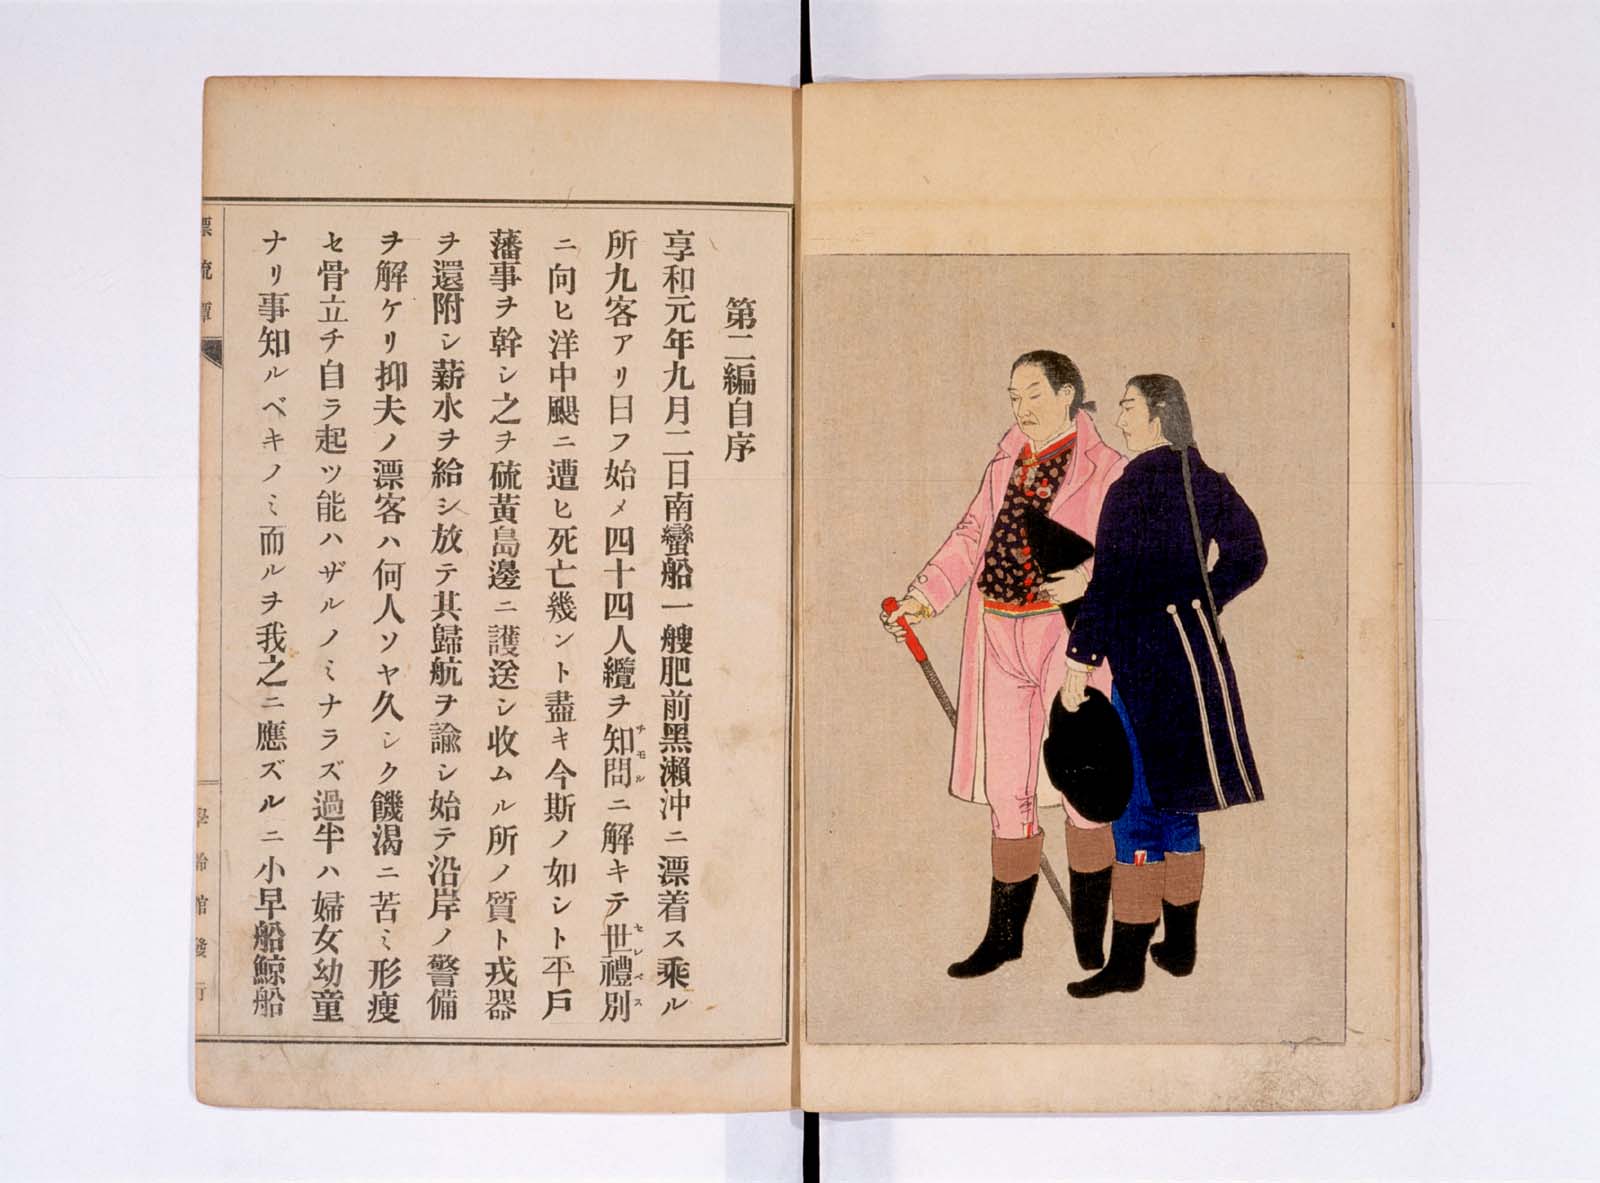 第二編自序
享和元年九月二日南蠻船一艘肥前黑瀨沖ニ漂着ス乘ル
所九客アリ曰フ始メ四十四人纜ヲ知問ニ解キテ世禮別
チモル
セレベス
ニ向ヒ洋中颶ニ遭ヒ死亡幾ント盡キ今斯ノ如シト平戶
藩事ヲ幹シ之ヲ硫黃島邊ニ護送シ收ムル所ノ質ト戎器
ヲ還附シ薪水ヲ給シ放テ其歸航ヲ諭シ始テ沿岸ノ警備
ヲ解ケリ抑夫ノ漂客ハ何人ソヤ久シク饑渴ニ苦ミ形瘦
セ骨立チ自ラ起ツ能ハザルノミナラズ過半ハ婦女幼童
ナリ事知ルベキノミ而ルヲ我之ニ應ズルニ小早船鯨船
漂流譚
館發行